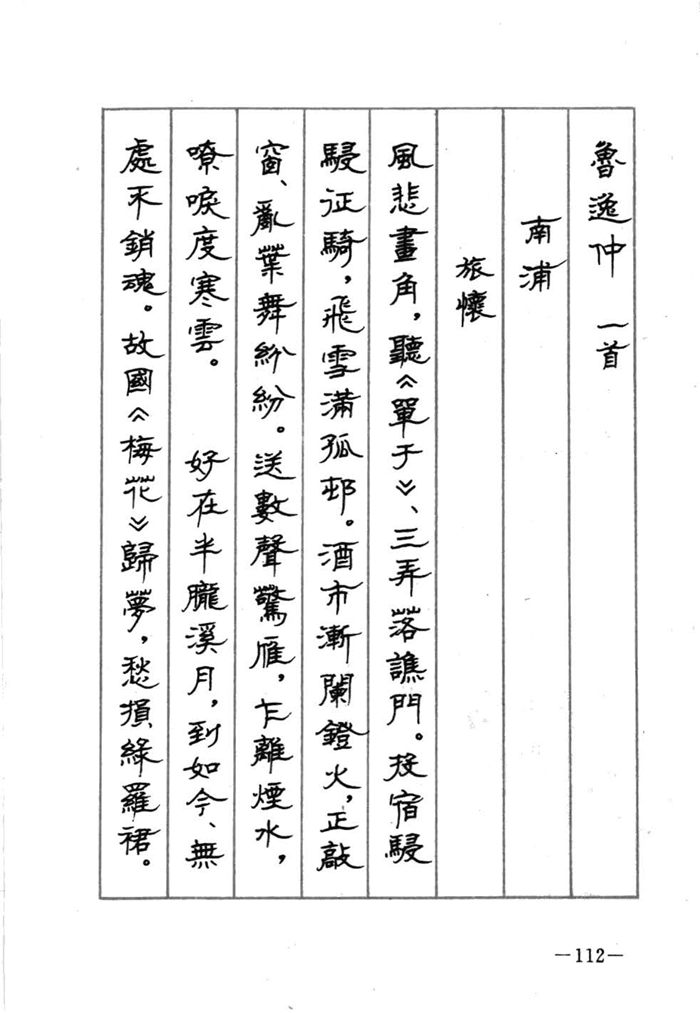 魯逸仲　一首
南浦
旅懷
風悲畫角，聽《單于》、三弄落譙門。投宿駸
駸征騎，飛雪滿孤邨。酒市漸闌鐙火，正敲
窗、亂葉舞紛紛。送數聲驚雁，乍離煙水，
嘹唳度寒雲。　好在半朧溪月，到如今、無
處不銷魂。故國《梅花》歸夢，愁損綠羅裙。
—112—